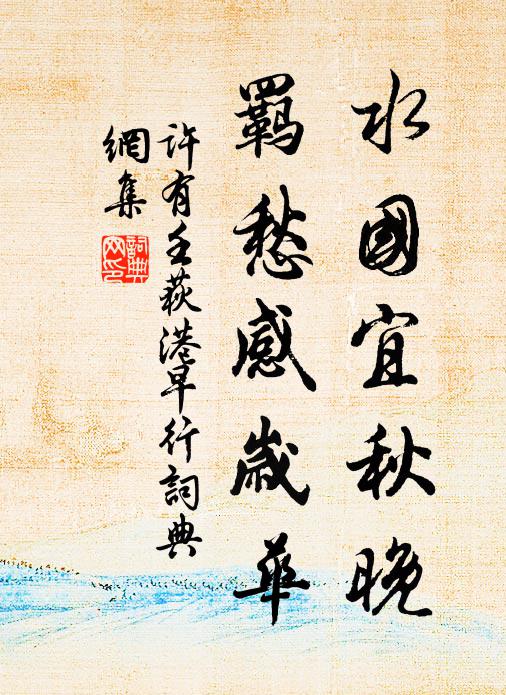 水國宜秋晚
羈愁感歲華
許有壬荻港早行詞典
網集
詞典
网印